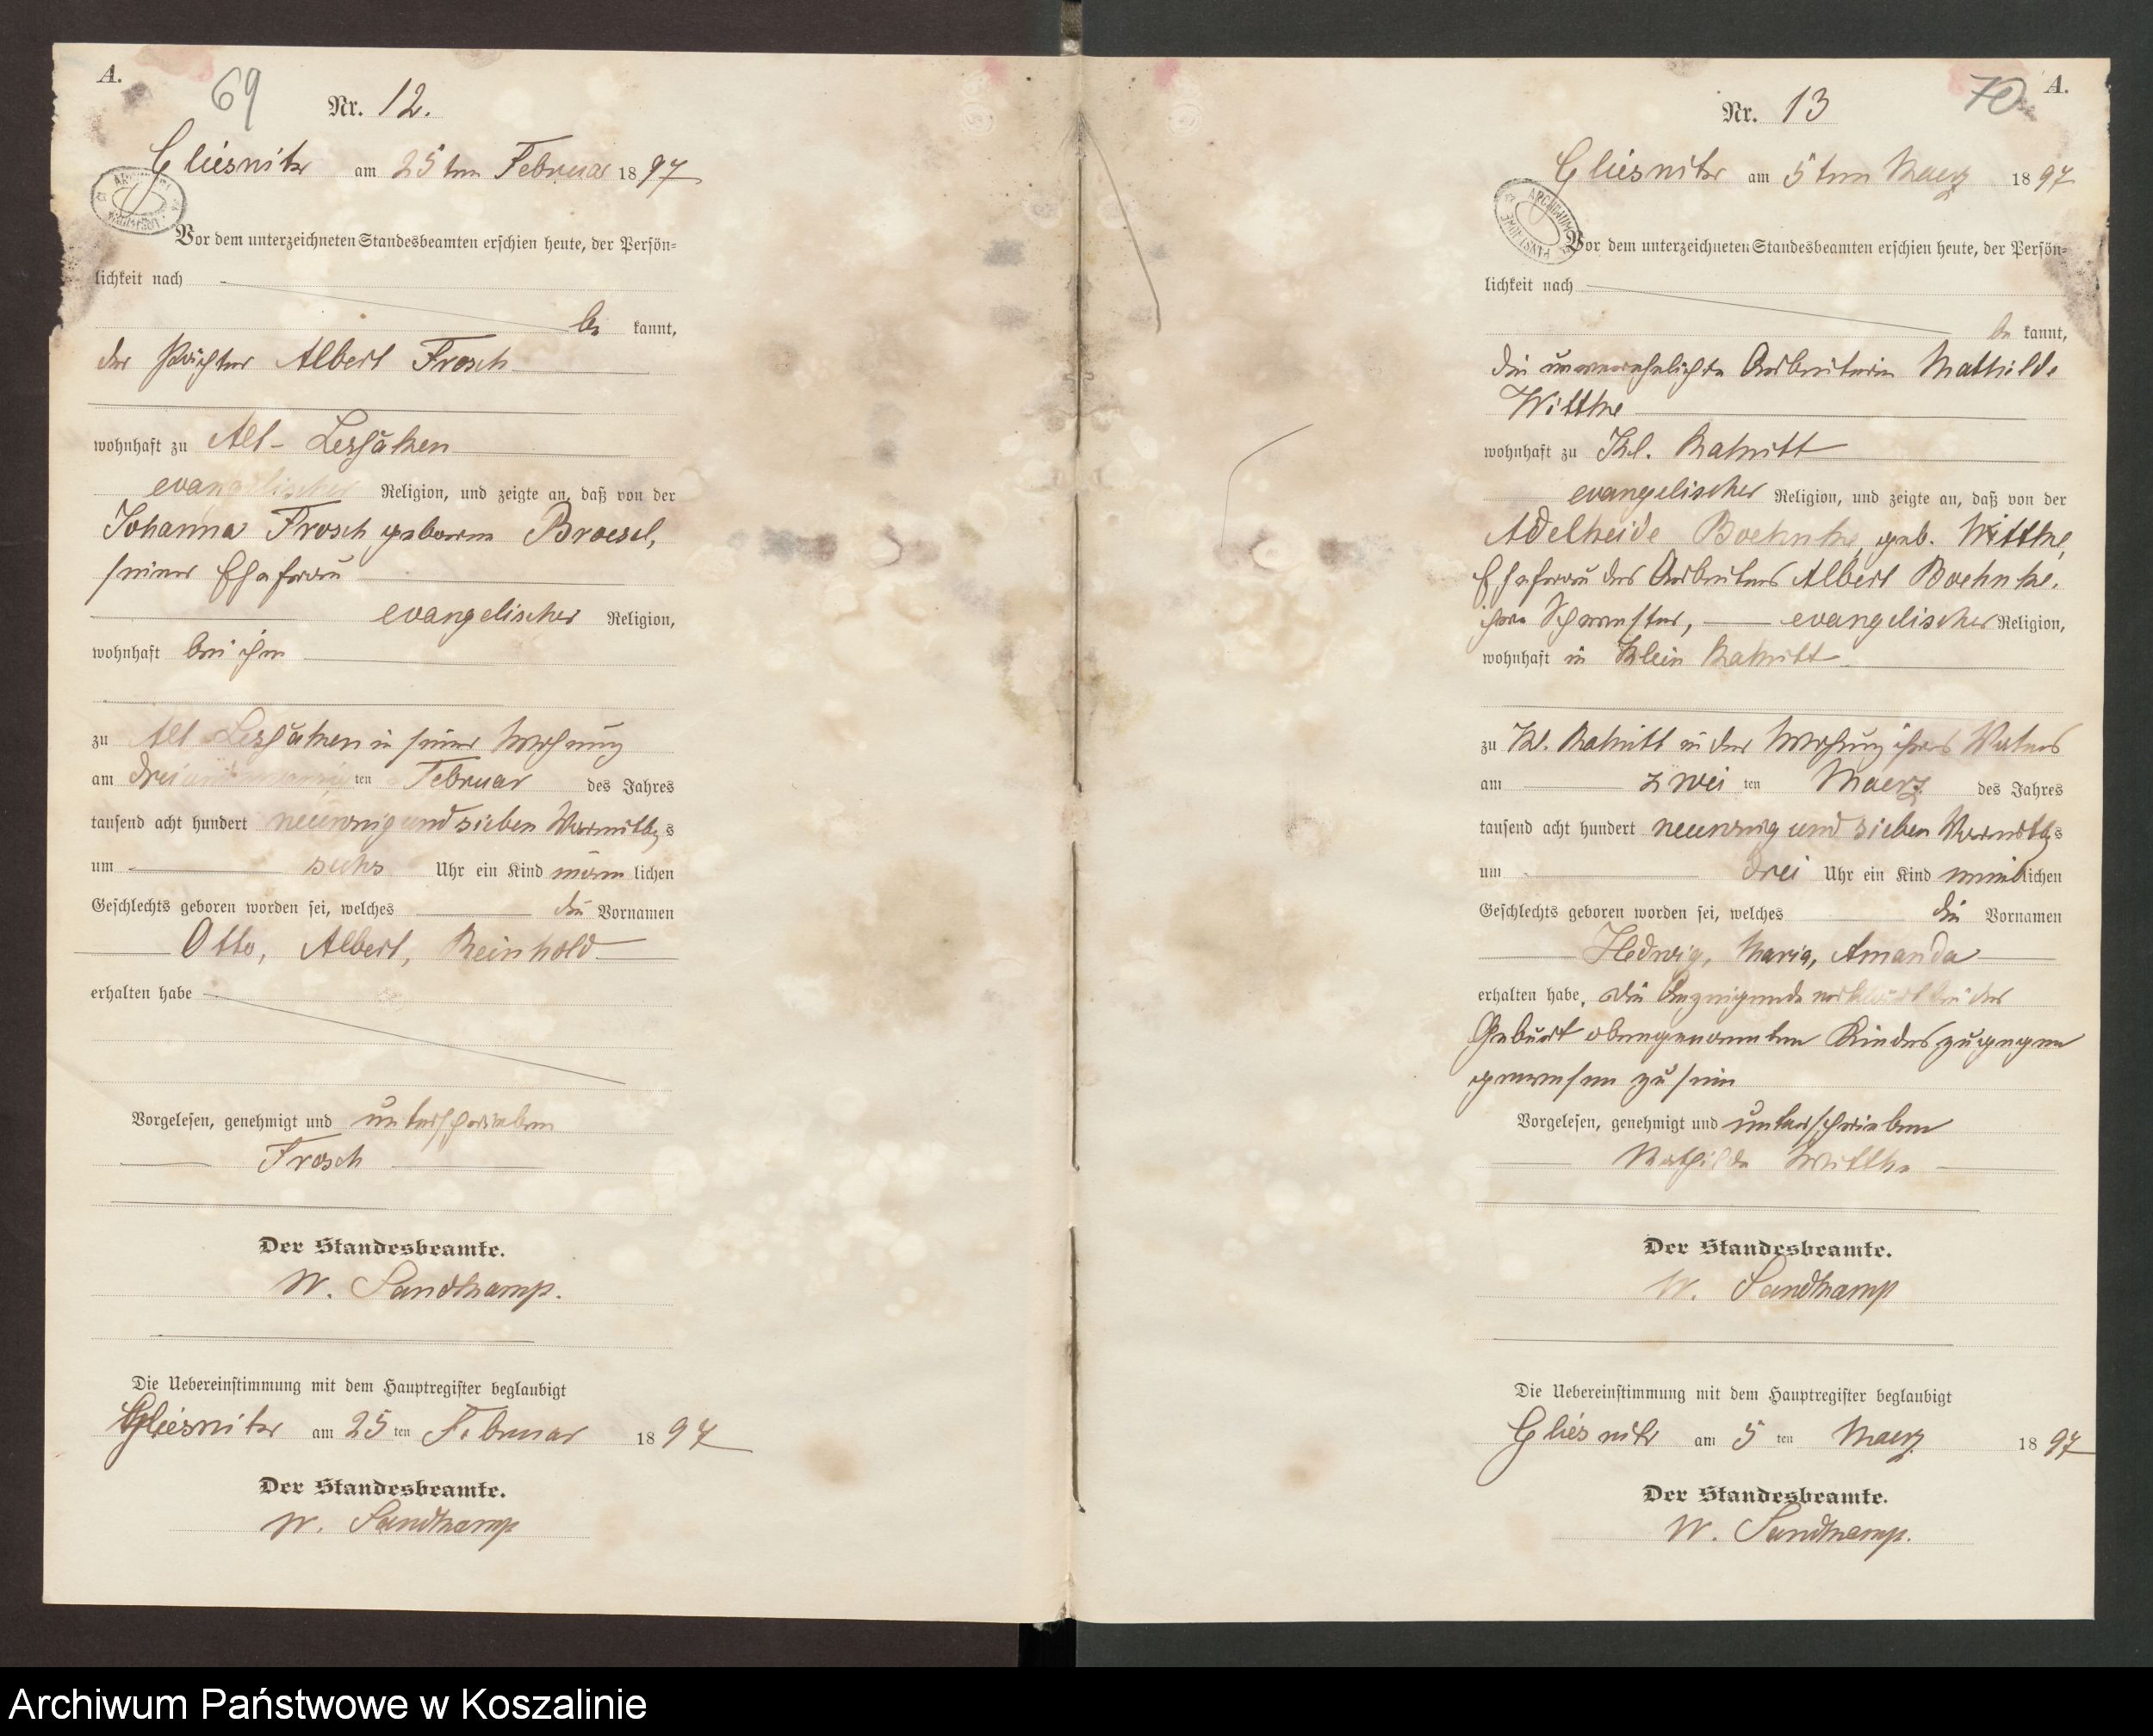 A.
69
Nr. 12.
Gliesnitz am 25ten Februar 1897
Vor dem unterzeichneten Standesbeamten erschien heute, der Persön-
lichkeit nach
be kannt,
der Pächter Albert Frosch
wohnhaft zu Alt-
evangelischer Religion, und zeigte an, daß von der
Johanna Frosch geborene Broesel,
seiner Ehefrau
evangelischer Religion,
wohnhaft bei ihm
zu Alt in seiner Wohnung
am dreiundzwanzigten Februar des Jahres
tausend acht hundert neunzig und sieben Vormittags
um sechs Uhr ein Kind männlichen
Geschlechts geboren worden sei, welches die Vornamen
Otto, Albert, Reinhold
erhalten habe
Vorgelesen, genehmigt und unterschrieben
Frosch
Der Standesbeamte.
W. Sandkamp.
Die Uebereinstimmung mit dem Hauptregister beglaubigt
Gliesnitz am 25ten Februar 1897
Der Standesbeamte.
W. Sandkamp
70
A.
Nr. 13
Gliesnitz am 5ten Maerz 1897
Vor dem unterzeichneten Standesbeamten erschien heute, der Persön-
lichkeit nach
be kannt,
die unverehelichte Arbeiterin Mathilde
Witthe
wohnhaft zu Kl.
evangelischer Religion, und zeigte an, daß von der
Adelheide Boehnke, geb. Witthe,
Ehefrau des Arbeiters Albert Boehnke,
ihre Schwester, evangelischer Religion,
wohnhaft in Klein
zu Kl. in der Wohnung ihres Vaters
am zweiten Maerz des Jahres
tausend acht hundert neunzig und sieben Vormittags
um drei Uhr ein Kind weiblichen
Geschlechts geboren worden sei, welches die Vornamen
Hedwig, Maria, Amanda
erhalten habe. Die Anzeigende erklärt bei der
Geburt obengenannten Kindes zugegen
gewesen zu sein
Vorgelesen, genehmigt und unterschrieben
Mathilde Witthe
Der Standesbeamte.
W. Sandkamp
Die Uebereinstimmung mit dem Hauptregister beglaubigt
Gliesnitz am 5ten Maerz 1897
Der Standesbeamte.
W. Sandkamp.
Archiwum Państwowe w Koszalinie